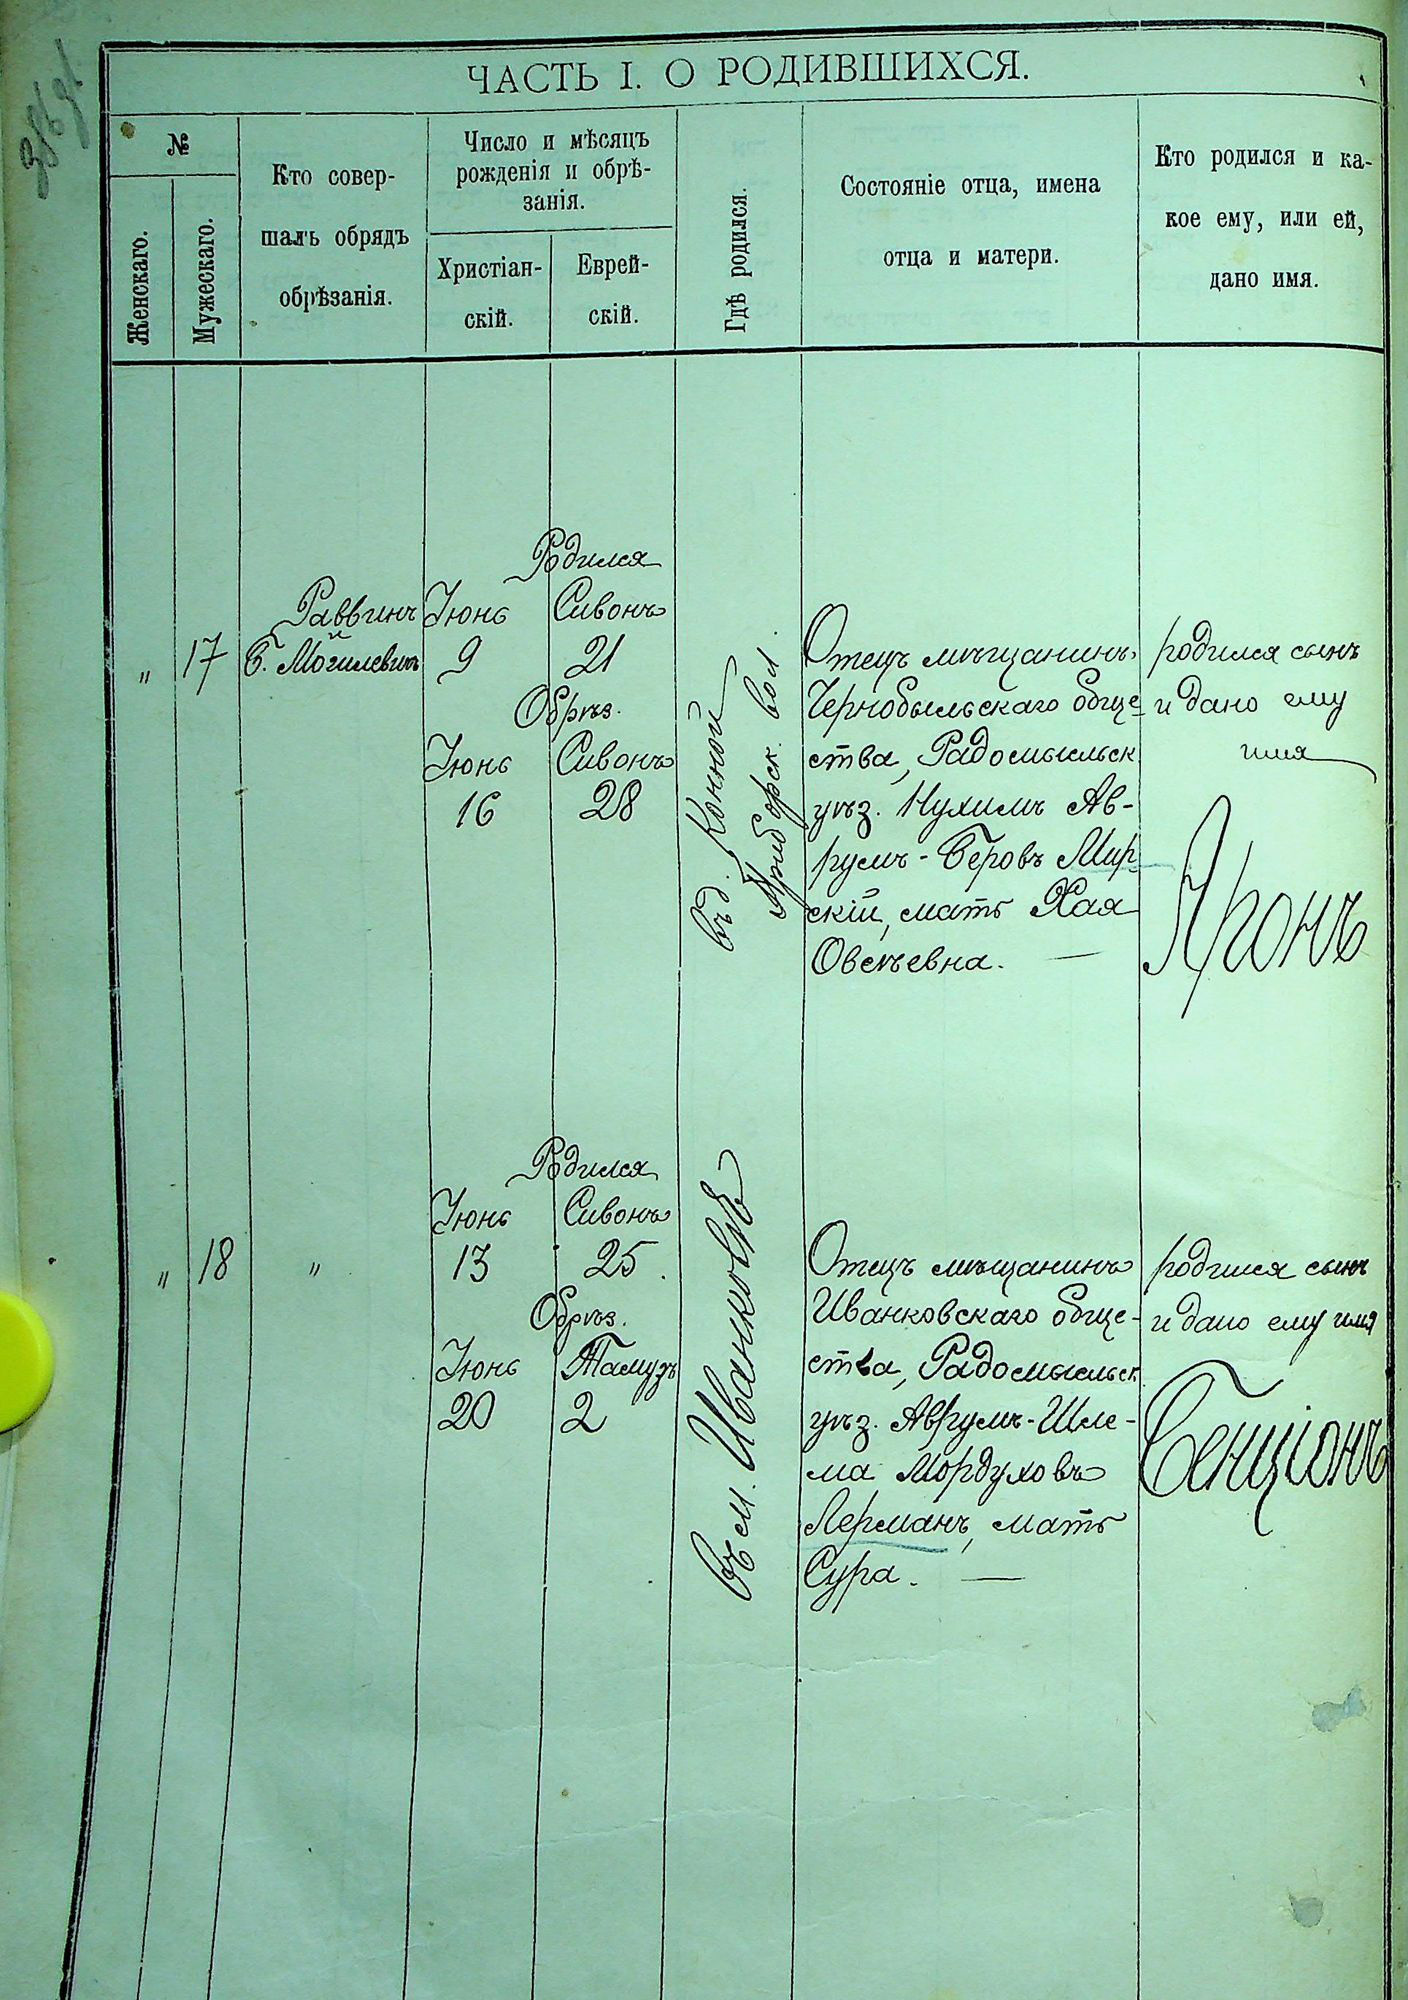 ЧАСТЬ I. О РОДИВШИХСЯ.
№
Женскаго.
Мужескаго.
Кто совер-
шалъ обрядъ
обрѣзанія.
Число и мѣсяцъ
рожденія и обрѣ-
занія.
Христіан-
скій.
Еврей-
скій.
Гдѣ родился.
Состояніе отца, имена
отца и матери.
Кто родился и ка-
кое ему, или ей,
дано имя.
"
17
Раввинъ
Б. Могилевичъ
Родился
Іюнь Сивонъ
9 21
Обрѣз.
Іюнь Сивонъ
16 28
въ д. Конной
Приборск. вол.
Отецъ мѣщанинъ
Чернобыльскаго обще-
ства, Радомысльск
уѣз. Нухимъ Ав-
румъ-Беровъ Мир-
скій, мать Хая
Овсѣевна. —
родился сынъ
и дано ему
имя
Аронъ
"
18
"
Родился
Іюнь Сивонъ
13 25.
Обрѣз.
Іюнь Тамузъ
20 2
въ м. Иванковѣ
Отецъ мѣщанинъ
Иванковскаго обще-
ства, Радомысльск.
уѣз. Аврумъ-Шле-
ма Мордуховъ
Лерманъ, мать
Сура. —
родился сынъ
и дано ему имя
Бенціонъ